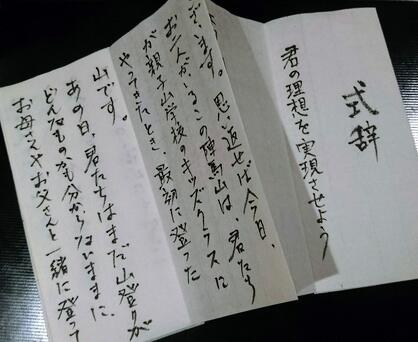 式辞
君の理想を実現させよう
ざいます。思い返せば今日、
お二人がいるこの陣馬山は、君たち
が親子山学校のキッズクラスに
やってきたとき、最初に登った
山です。
あの日、君たちはまだ山登りが
どんなものかも分からないままに、
お母さんやお父さんと一緒に登って